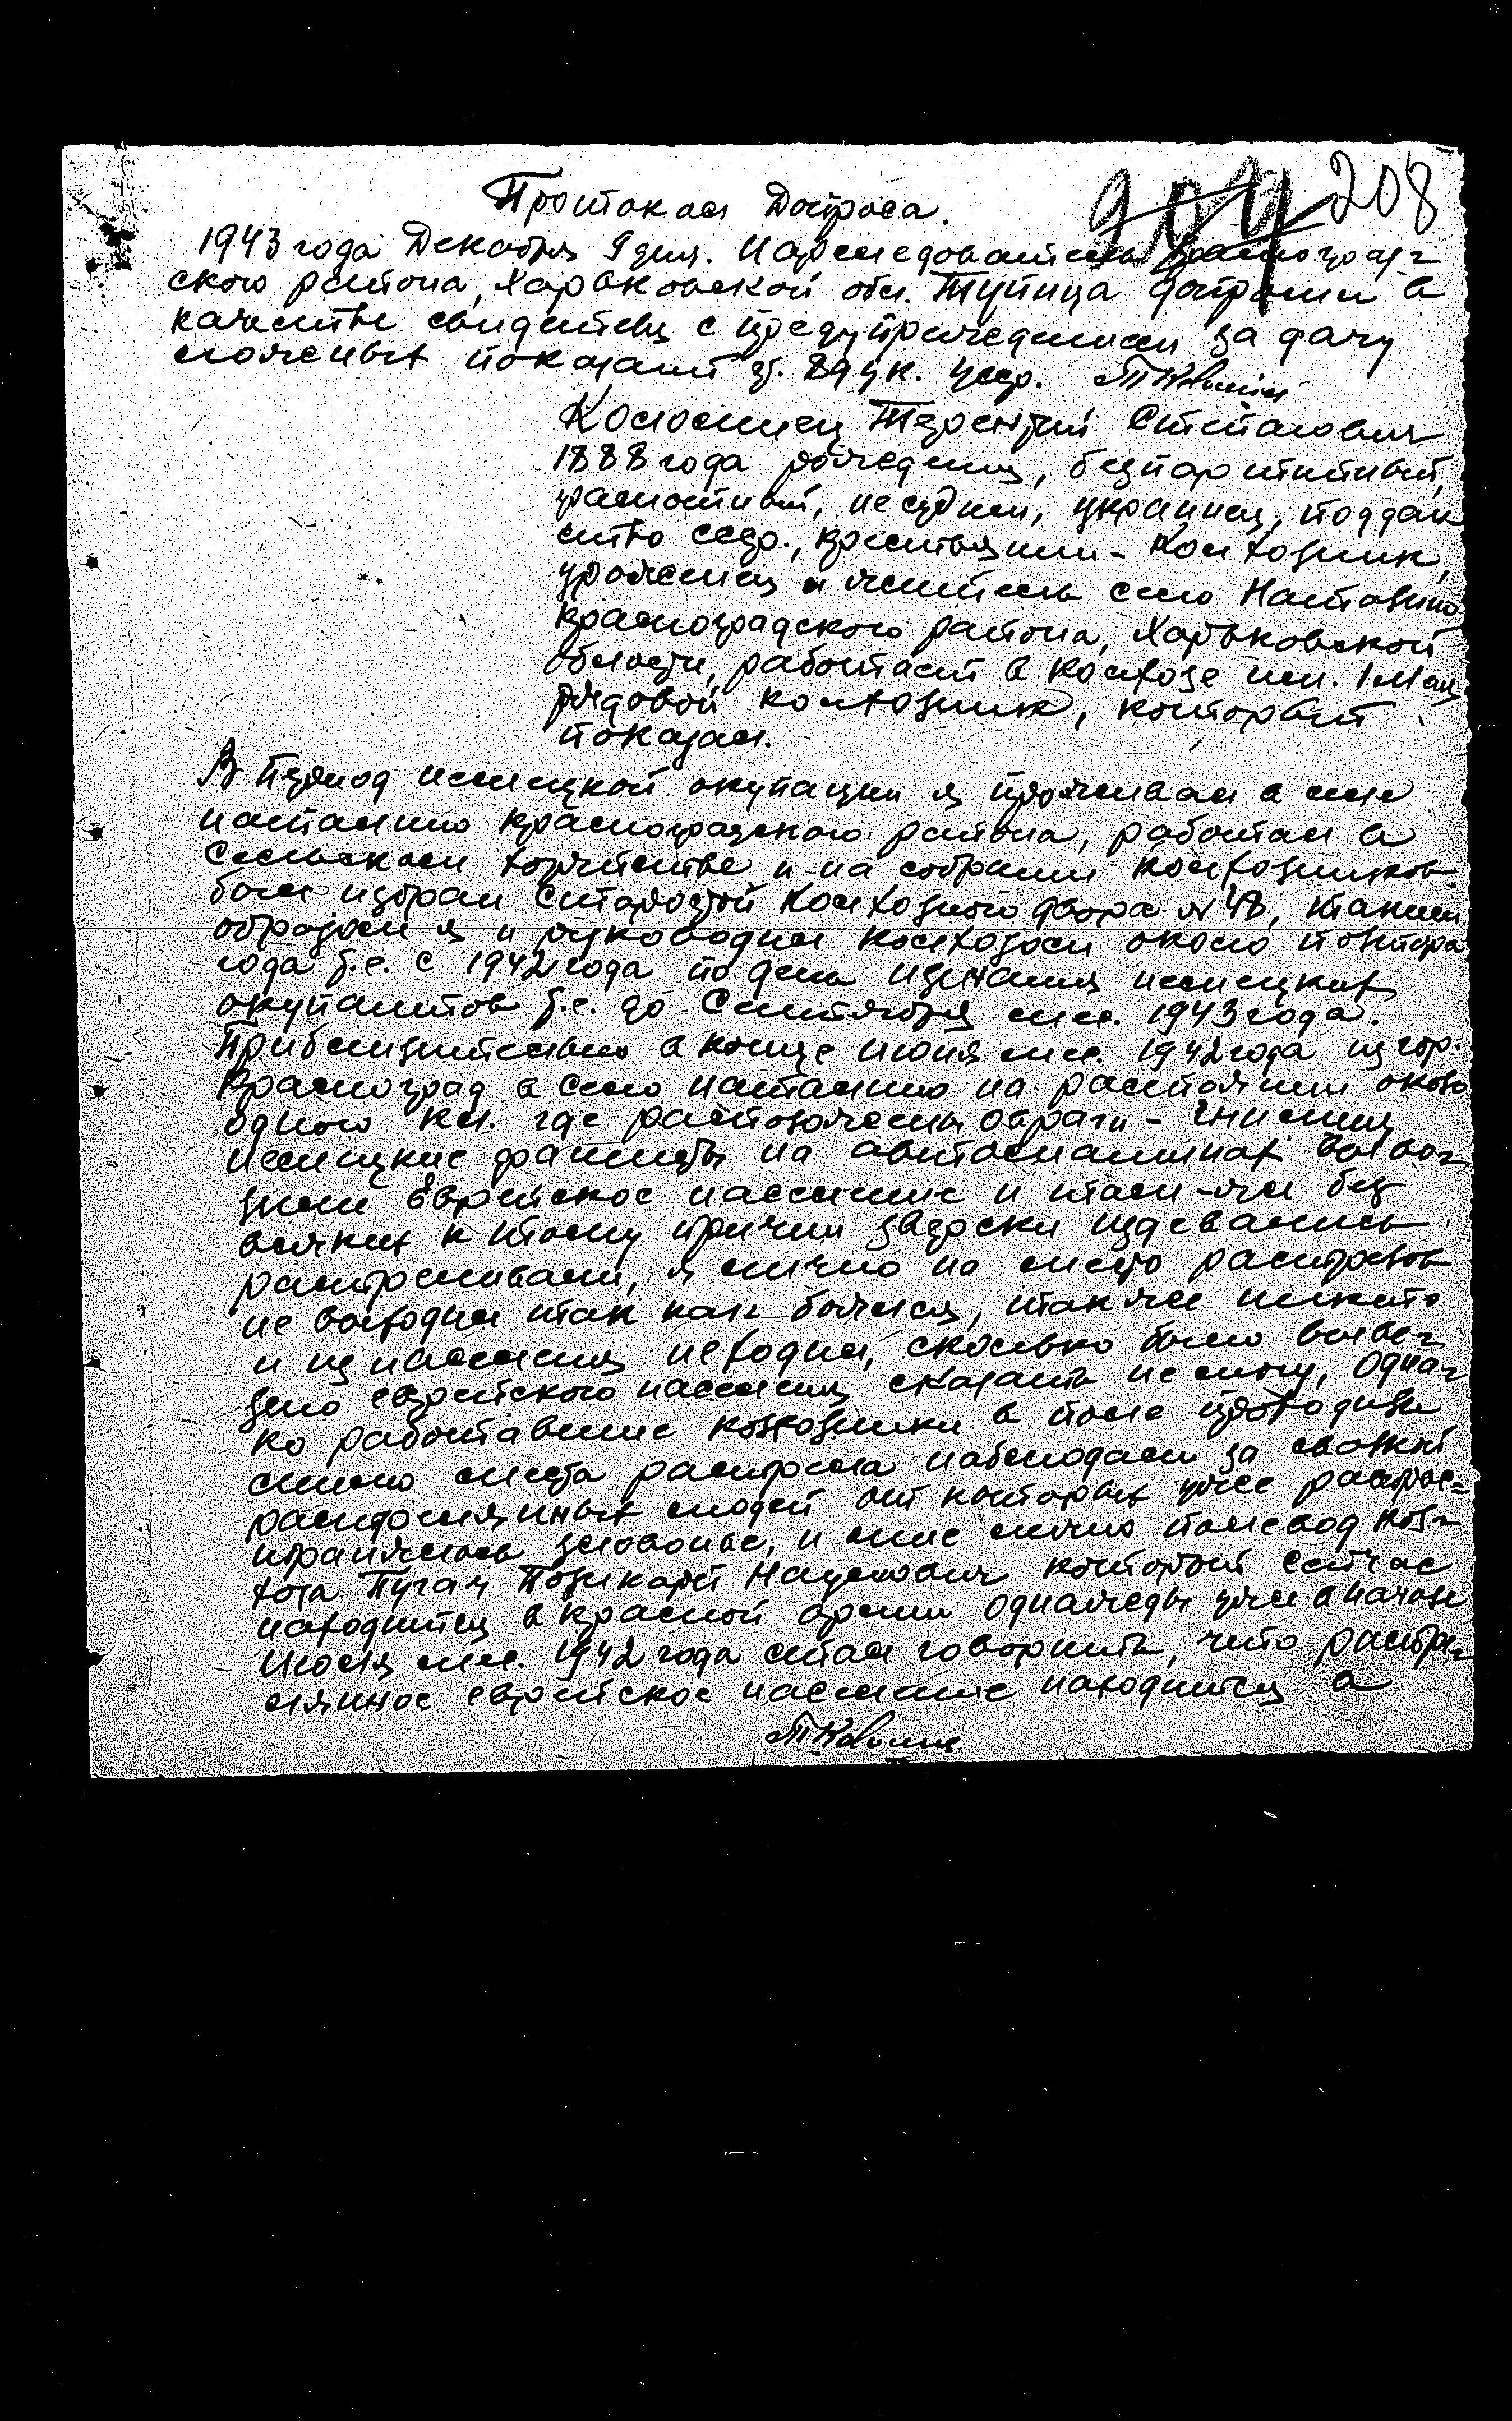 208
Протокол Допроса.
1943 года Декабря 9 дня. Нарследователь Красноград-
ского района, Харьковской обл. Тупица допросил в
качестве свидетеля с предупреждением за дачу
ложеных показаний 89 ук. усср.
Коломиец Терентий Степанович
1888 года рождения, безпартийный,
грамотный, несудим, украинец, поддан
ство ссср., крестьянин - Колхозник,
уроженец и житель село
Красноградского района, Харьковской
области, работает в колхозе им. 1 Мая
рядовой колхозник, который
показал.
В период немецкой окупации я проживал в селе
Красноградского района, работал в
Сельском и на собрании Колхозников
был избран Старостой Колхозного двора №48, таким
образом я и руководил колхозом около полтора
года т.е. с 1942 года по день изгнания немецких
окупантов т.е. до Сентября м-ца. 1943 года.
Приблизительно в конце июня м-ца. 1942 года из гор.
Красноград в село на расстоянии около
одного км. где расположены овраги -
немецкие фашисты на автомашинах вывоз-
зили Еврейское население и там-же без
всяких к тому причин зверски издевались
расстреливали, я лично на место расстрелов
не выходил так как боялся, также никто
и из населения неходил, сколько было вывез-
зено еврейского населения сказать не могу, Одна-
ко работавшие колхозники в поле проходили
мимо места расстрела наблюдали за
расстрелянных людей от которых уже распрос-
транялось зловонье, и мне лично полевод кол-
хоза Пугач Поликарп Наумович который сейчас
находится в красной армии однажды уже в начале
Июля м-ца. 1942 года стал говорить, что расстре-
лянное еврейское население находится в